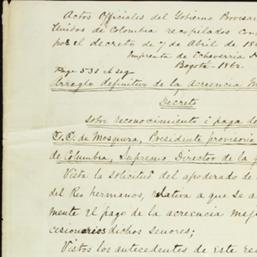 Actos Officiales del Gobierno Provisor
Unidos de Colombia recopilados con
por el decreto de 7 de Abril de 18
Imprenta de Echeverria
Bogota - 1862.
Page 531 et seq
Arreglo definitivo de la acreencia M
Decreto
sobre reconocimiento i pago de
T. C. de Mosquera, Presidente provisorio
de Columbia, Supremo Director de la g
Vista la solicitud del apoderado de
del Rio hermanos, relativa a que se a
mente el pago de la acreencia
cesionarios dichos señores;
Vistos los antecedentes de este re